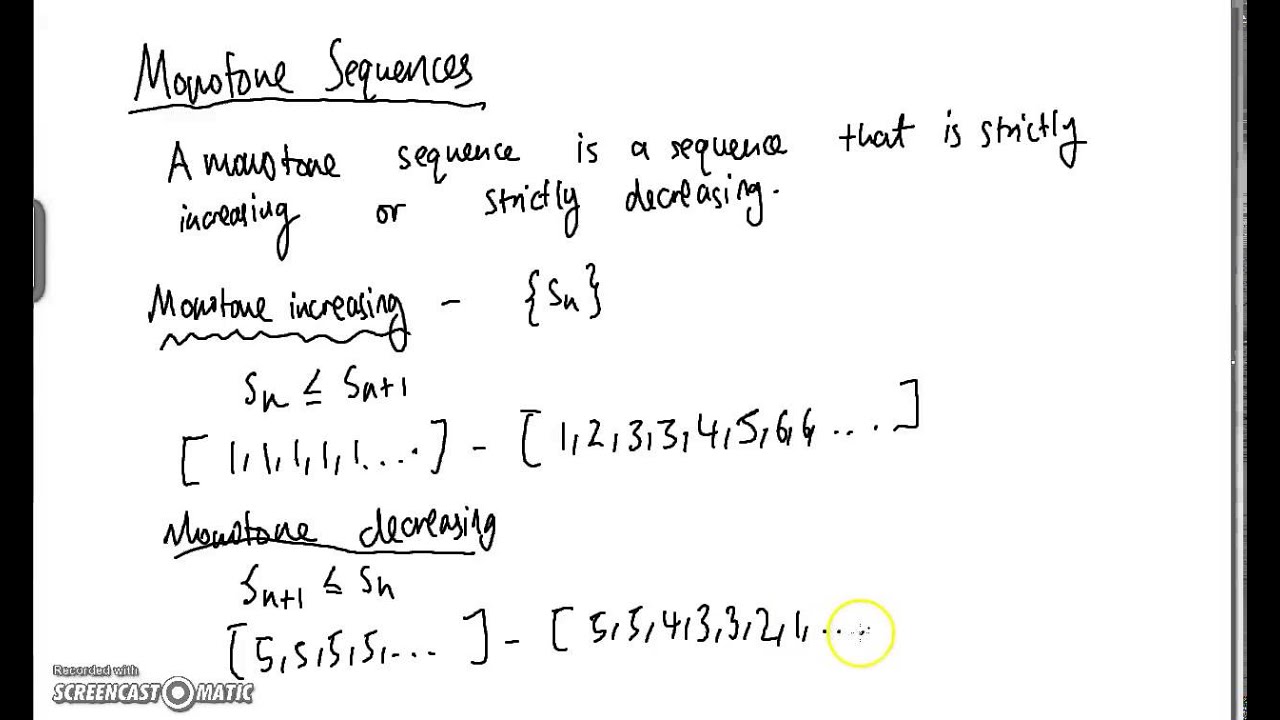 Monotone Sequences
A monotone sequence is a sequence that is strictly
increasing or strictly decreasing.
Monotone increasing - {Sn}
Sn ≤ Sn+1
[1,1,1,1,1....] - [1,2,3,3,4,5,6,6, ....]
Monotone decreasing
Sn+1 ≤ Sn
[5,5,5,5,... ] - [5,5,4,3,3,2,1,....
Recorded with
SCREENCAST MATIC